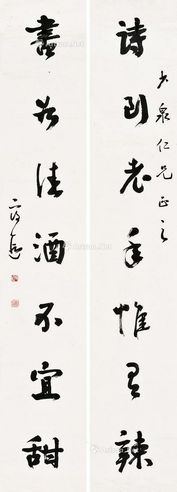 詩到老年惟有辣
少泉仁兄正之
書如佳酒不宜甜
二適